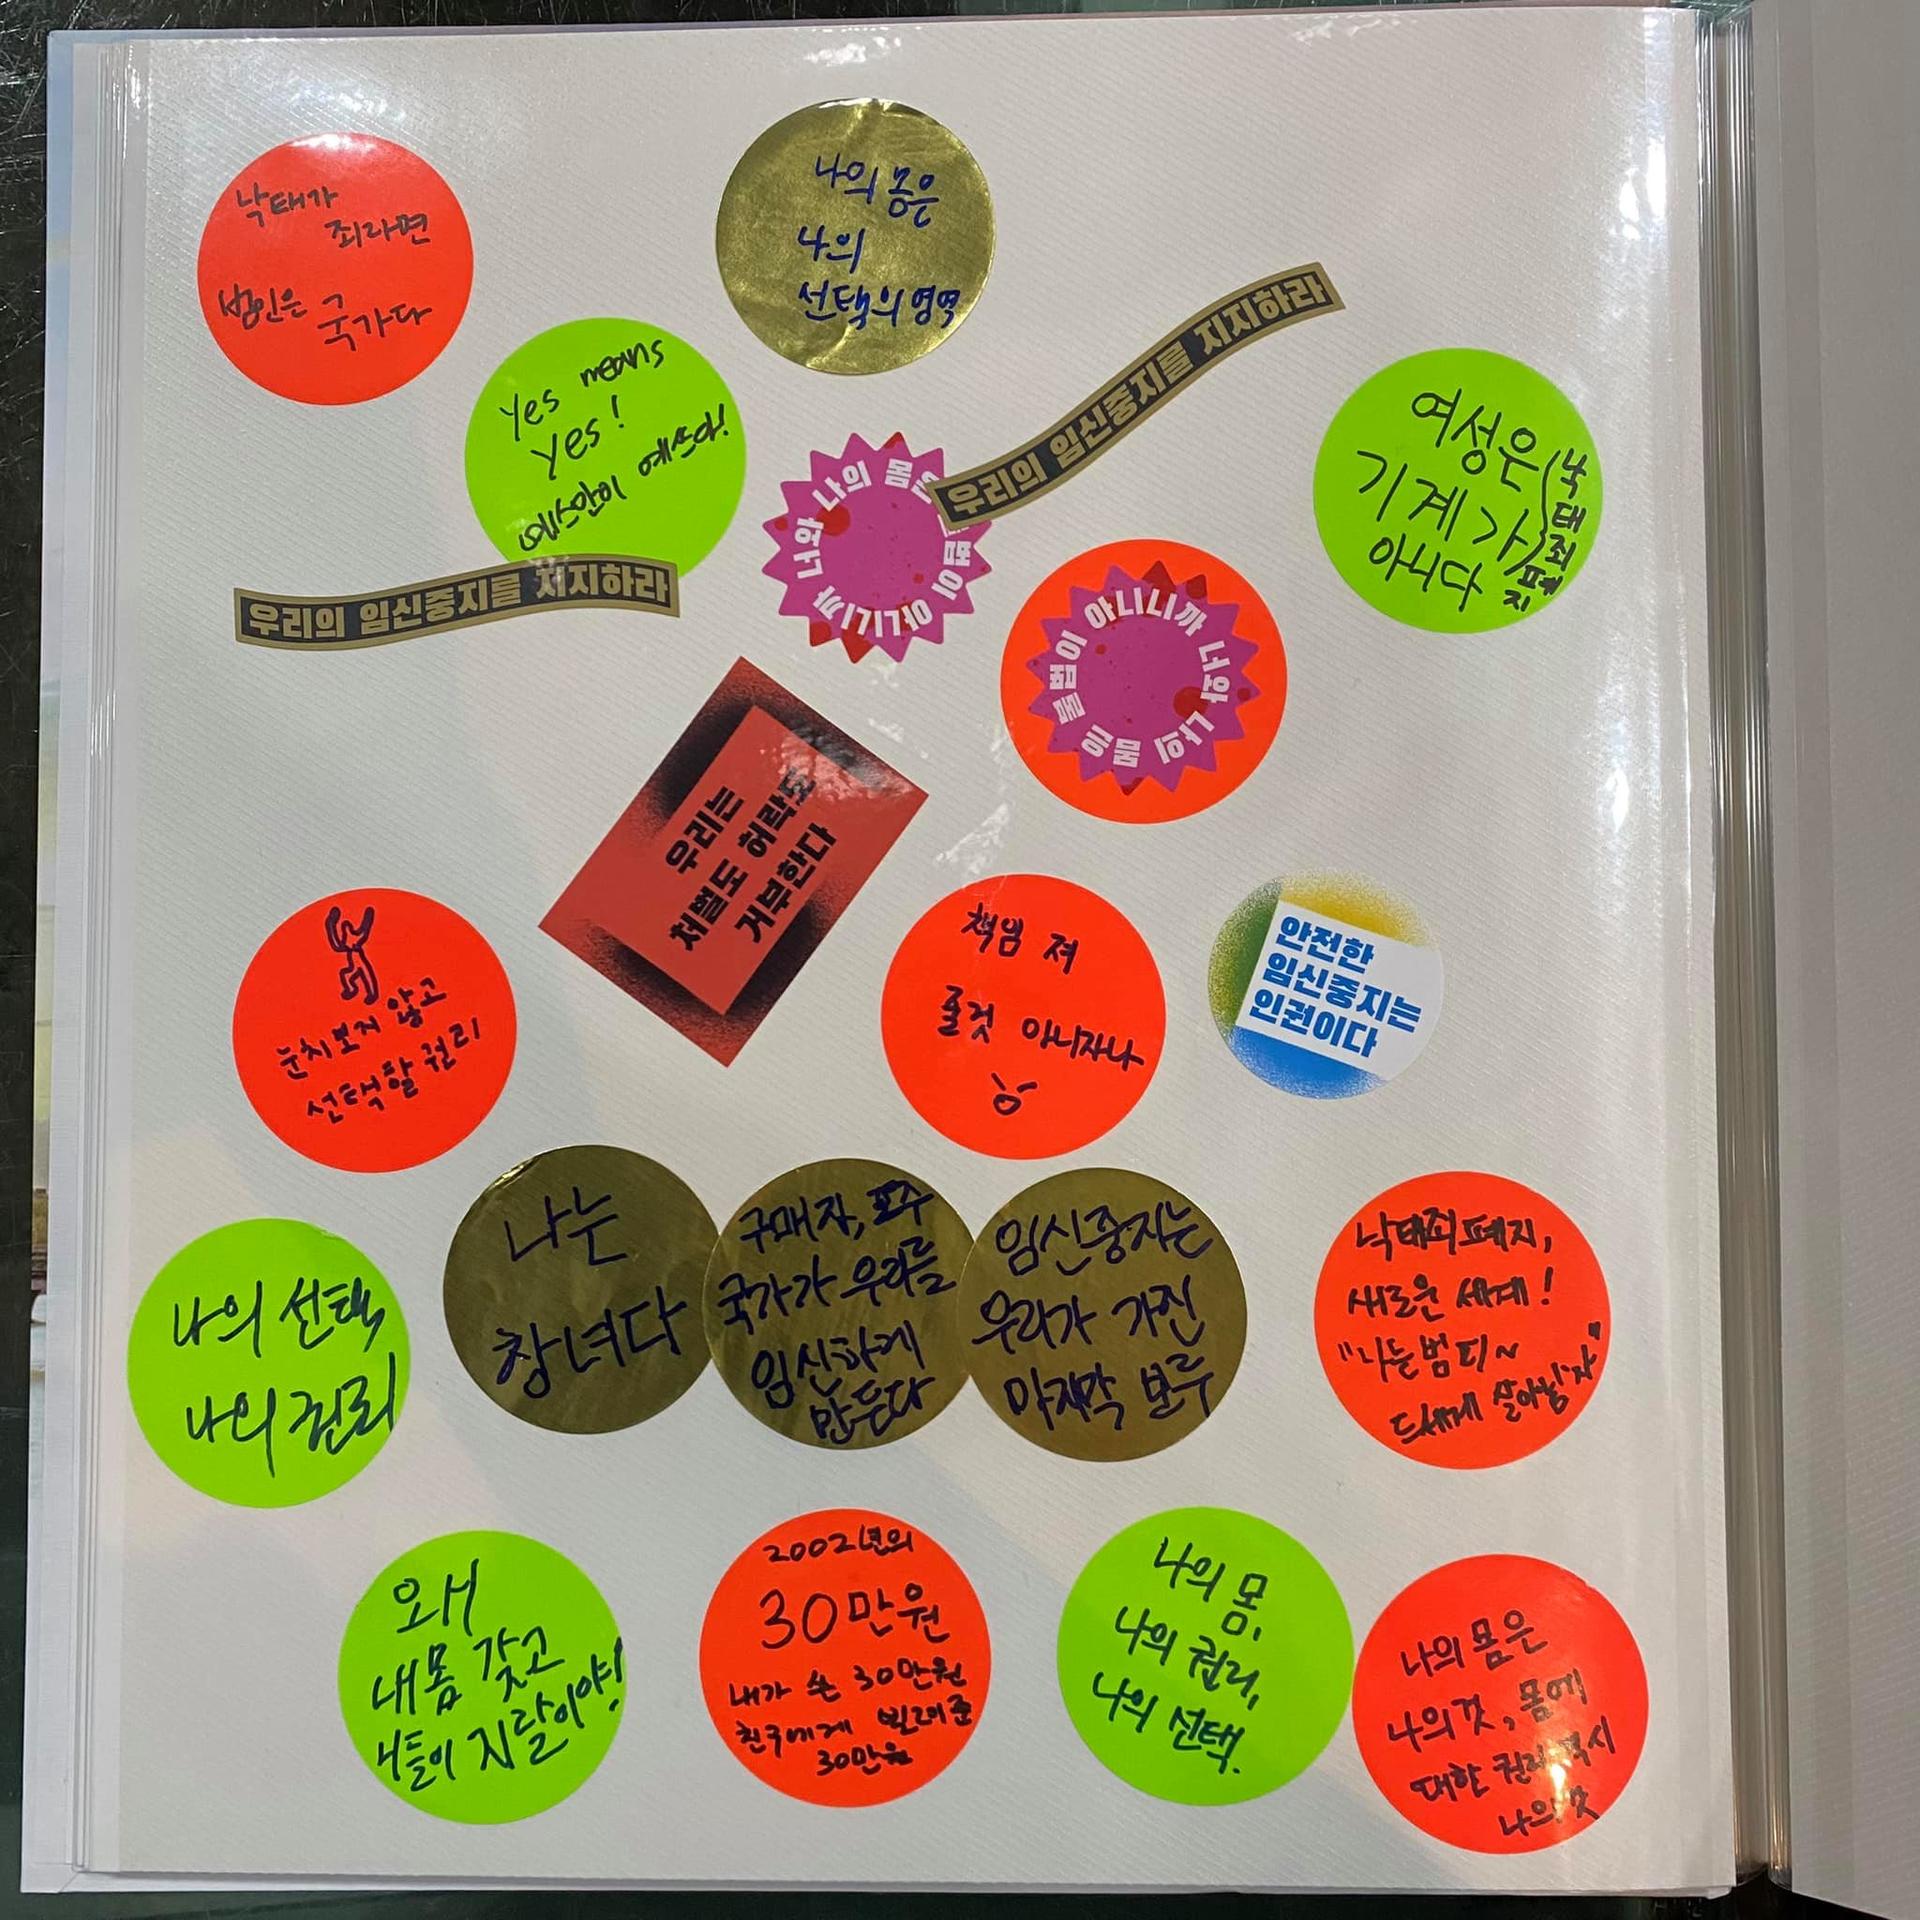 낙태가
죄라면
범인은 국가다
나의 몸은
나의
선택의 영역
yes means
yes!
예스만이 예쓰다!
우리의 임신중지를 지지하라
여성은
기계가
아니다
(낙태죄폐지)
너와 나의 몸은
법이 아니니까
우리의 임신중지를 지지하라
불법이 아니니까 너와 나의 몸은
우리는
처벌도 허락도
거부한다
눈치보지 않고
선택할 권리
책임 져
줄것 아니자나
안전한
임신중지는
인권이다
나는
창녀다
구매자, 포주
국가가 우리를
임신하게
만든다
임신중지는
우리가 가진
마지막 보루
나의 선택
나의 권리
낙태죄폐지,
새로운 세계!
"나는범디~
드세게 살아남자"
오서
내몸 갖고
너들이 지랄이야!
2002년의
30만원
내가 쓴 30만원
친구에게 빌려준
30만원
나의 몸,
나의 권리,
나의 선택.
나의 몸은
나의것, 몸에
대한 권리 역시
나의 것